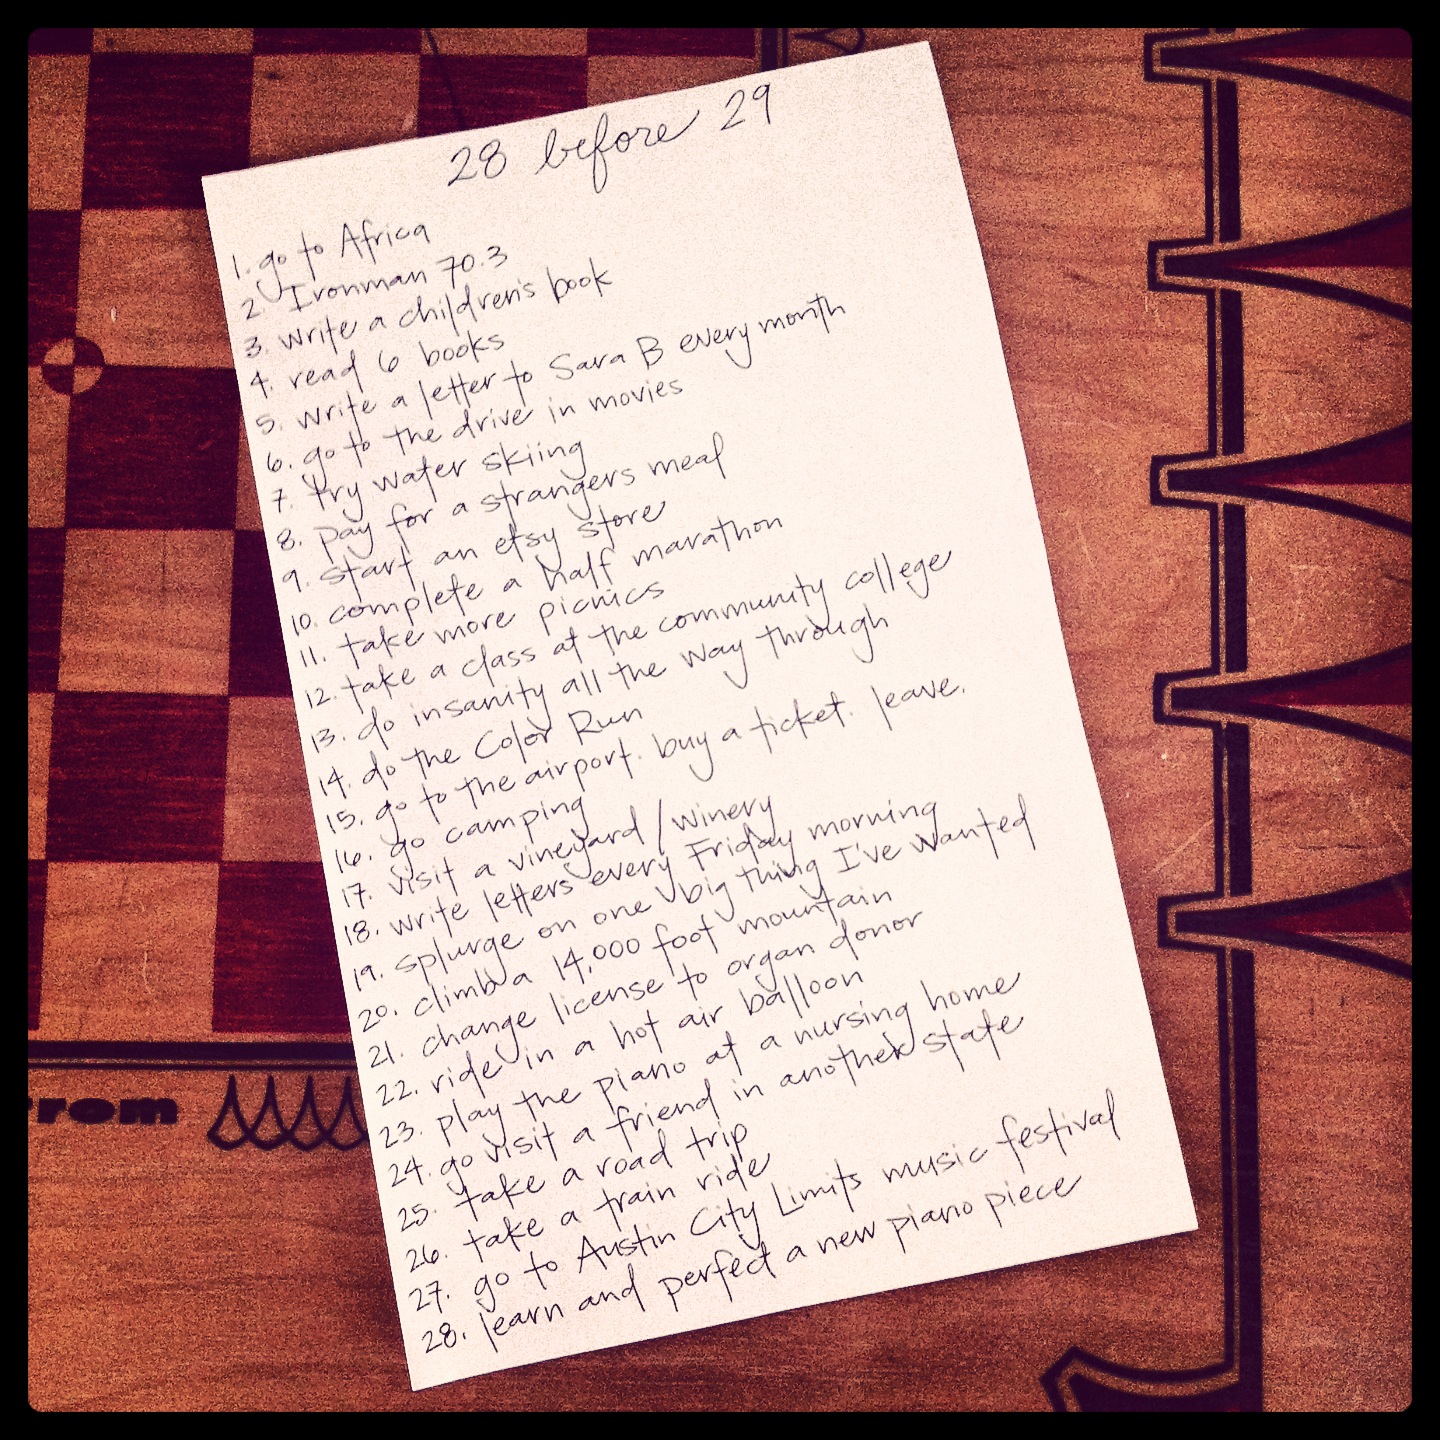 28 before 29
1. go to Africa
2. Ironman 70.3
3. write a children's book
4. read 6 books
5. write a letter to Sara B every month
6. go to the drive in movies
7. try water skiing
8. pay for a strangers meal
9. start an etsy store
10. complete a half marathon
11. take more picnics
12. take a class at the community college
13. do insanity all the way through
14. do the Color Run
15. go to the airport. buy a ticket. leave.
16. go camping
17. visit a vineyard / winery
18. write letters every Friday morning
19. splurge on one big thing I've wanted
20. climb a 14,000 foot mountain
21. change license to organ donor
22. ride in a hot air balloon
23. play the piano at a nursing home
24. go visit a friend in another state
25. take a road trip
26. take a train ride
27. go to Austin City Limits music festival
28. learn and perfect a new piano piece
rom